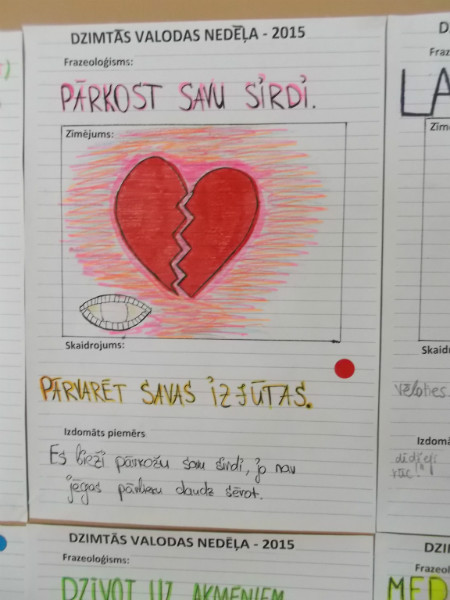 DZIMTĀS VALODAS NEDĒĻA - 2015
Frazeoloģisms:
PĀRKOST SAVU SIRDI.
Zīmējums:
Skaidrojums:
PĀRVARĒT SAVAS IZJŪTAS.
Izdomāts piemērs
Es bieži pārkožu savu sirdi, jo nav
jēgas pārlieku daudz sērot.
DZIMTĀS VALODAS NEDĒĻA - 2015
Frazeoloģisms:
DZĪVOT UZ AKMEŅIEM
D
Fraz
LA
Zīm
Skaid
vēlaties
Izdomā
DZI
Frazeol
MED